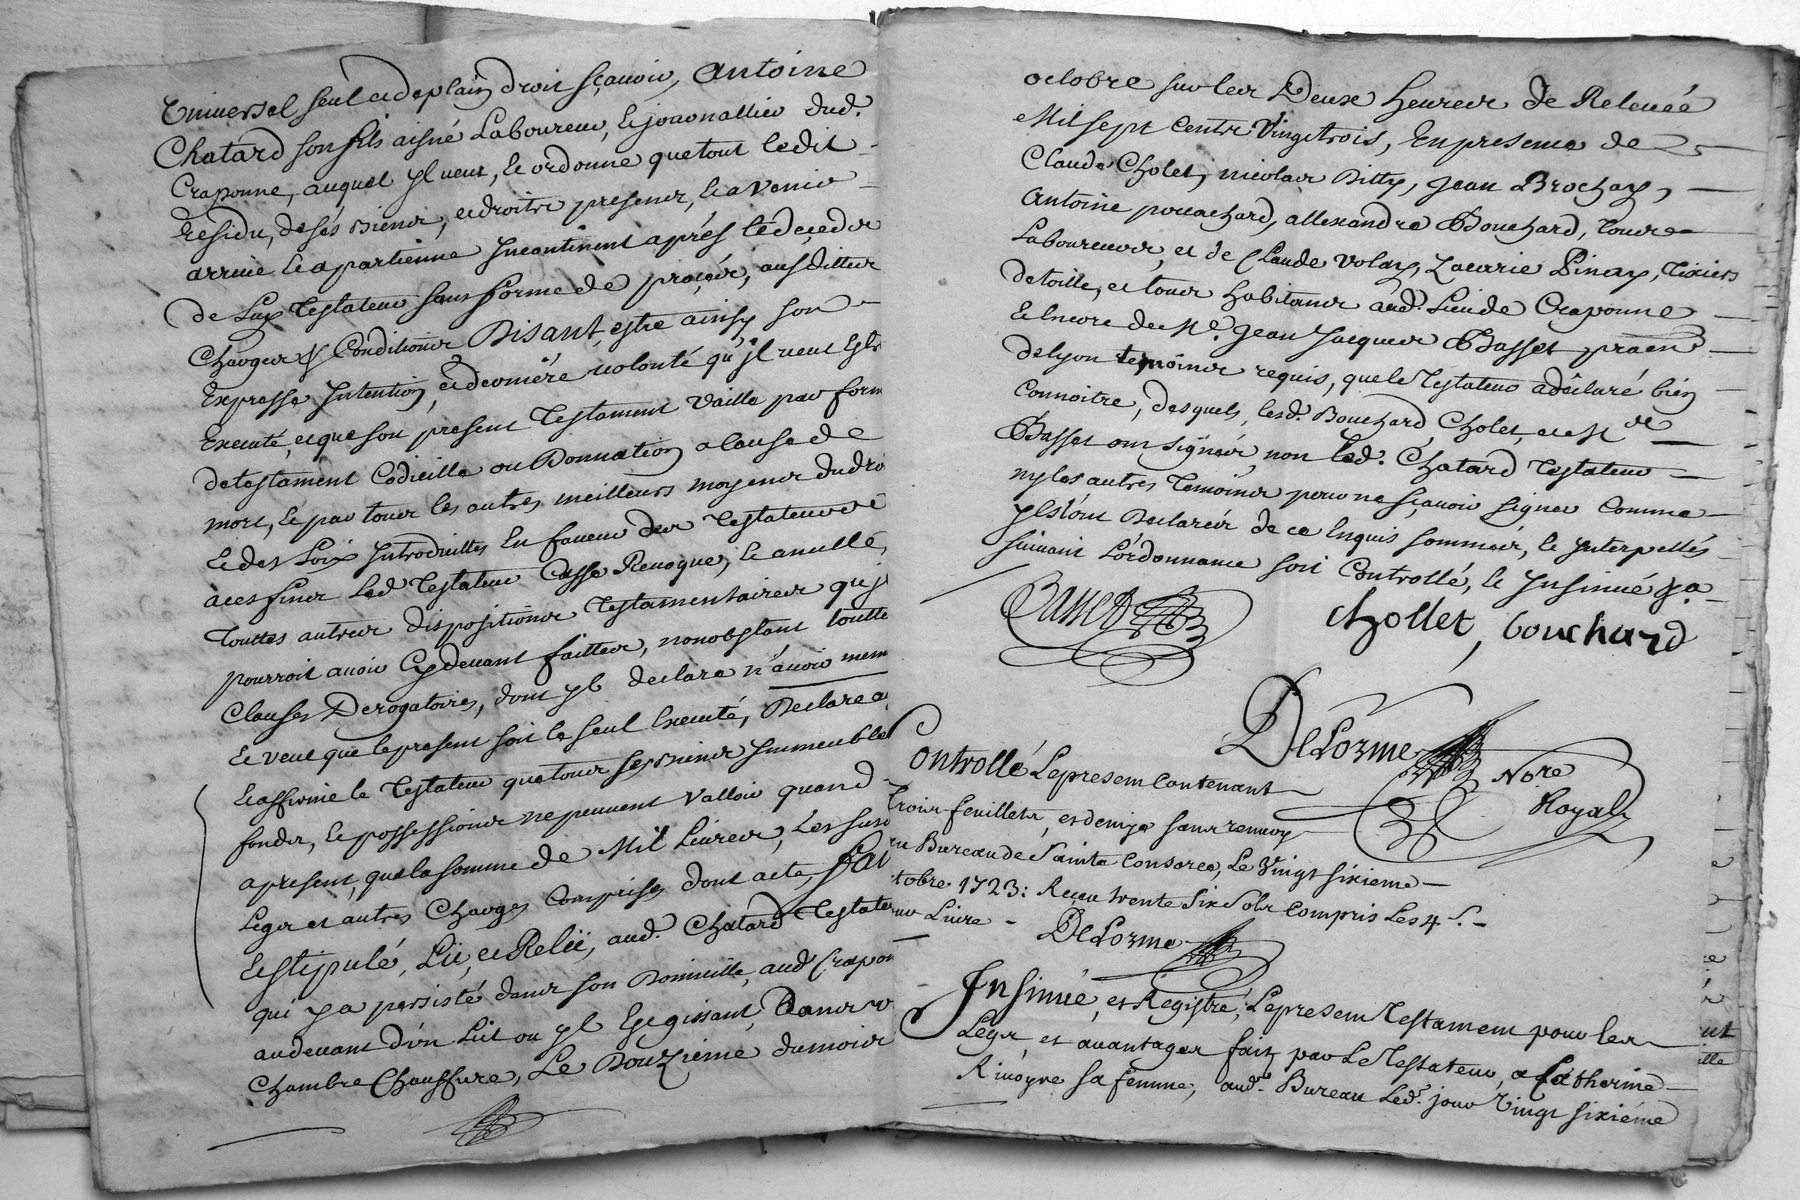 Universel seul et de plain droit sçavoir, Antoine
Chatard son fils aisné Laboureur, & journallier dud.
Craponne, auquel yl veut, & ordonne que tout ledit
Residu, de sés Biens, et droits presens, & a venir
arrive & apartienne Incontinent aprés le déçed
de Luy Testateur sans forme de procés, ausdittes
Charges & Conditions Disant, estre ainsy son
Expresse Intention, et derniére volonté qu'jl veut
Executé, et que son present Testament Vaille par form
de testament Codicille ou Donnation a Cause de
mort, & par tous les autres meilleurs moyens du dro
& des Loix Introduittes En faveur des Testateurs
a ces fins Led Testateur Casse Revoque, & anulle,
Touttes autres dispositions Testamentaires qu'j
pourroit avoir Cydevant faittes, nonobstant toutte
Clauses Derogatoires, dont yl declare n'avoir mem
& veut que le present soit le seul Executé, Declare a
& affirme le Testateur que tous ses Biens Immeuble
fonds, & possessions ne peuvent valloir quand
a present, que la somme de Mil Livres, Les sus
Legs et autres Charges Comprises dont acte, fait
& stipulé, Lû, et Relû, aud. Chatard Testate
qui y a persisté dans son Domicille, aud Crapon
au devant d'vn Lit ou yl Est gissant, Dans v
Chambre Chauffure, Le Douzième du mois
octobre sur les Deux heures de Relevée
Mil sept Cents Vingt trois, En presence de
Claude Cholet, nicolas Bitty, Jean Brochay,
Antoine pouachard, allexandre Bouchard, tous
Laboureurs, et de Claude Volay, Zacarie Pinay, Tixiers
de toille, et tous habitants aud. Lieu de Craponne
& Encore de Me. Jean Jacques Basset praen
de lyon temoins requis, que le Testateur a declaré bien
Connoitre, desquels, lesd. Bouchard, Cholet, et M
Basset ont signés, non Led. Chatard Testateur
ny les autres Temoins pour ne sçavoir signer Comme
yls ont Declarés de ce Enquis sommés, & Interpellés
suivant L'ordonnance soit Controllé, & Insinué
Basset
Chollet, bouchard
DeLorme
Nore
Royal
Controllé Le present Contenant
Trois feuillets, et demy sans renvoy
au Bureau de Sainte Consorce, Le Vingt sixieme
tobre 1723: Reçeu trente six sols Compris Les 4 s.
Livre
DeLorme
Insinué, et Registré, Le present Testament pour les
Legs, et avantages faits par Le Testateur, a Catherine
Rivoyre sa femme, aud. Bureau Led. jour Vingt sixième